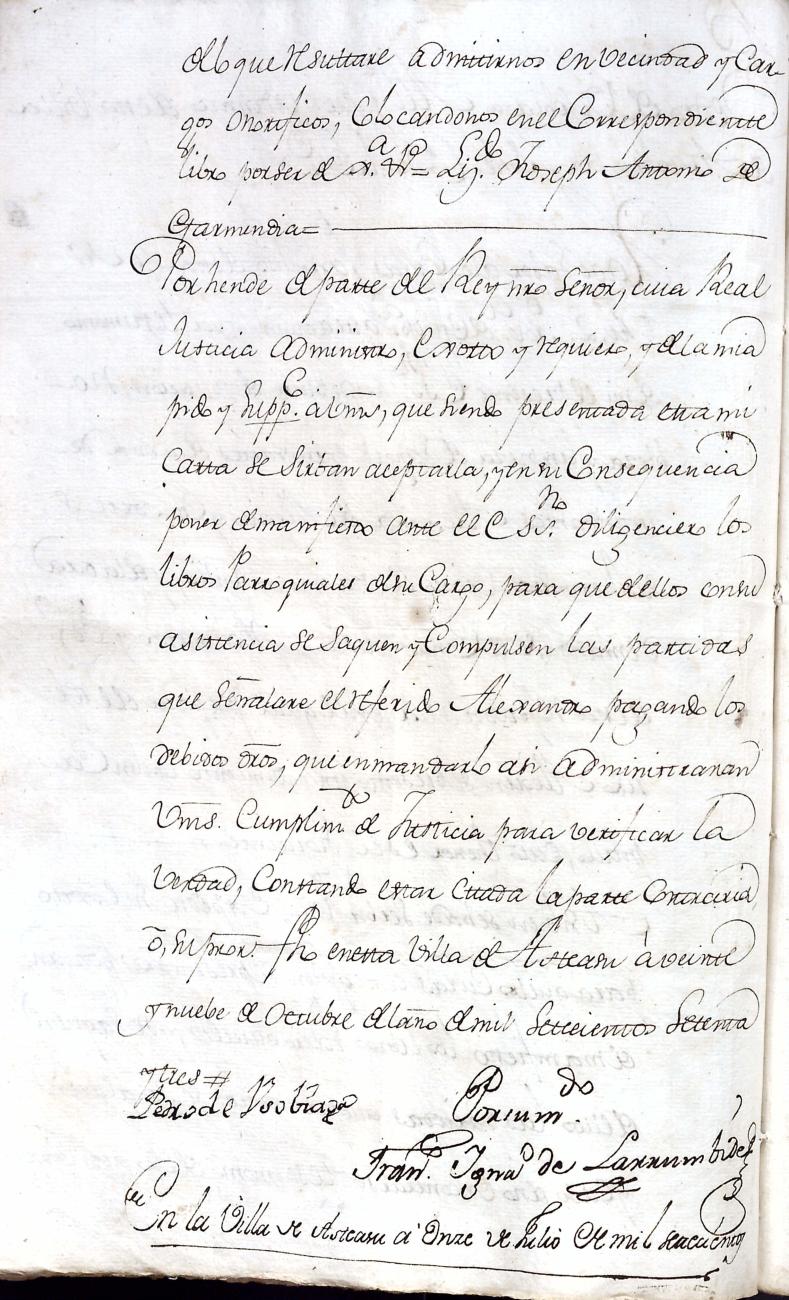 delo que resultare admitirnos en vecindad y Car-
gos onorificos, Colocandonos en el Correspondientte
libro por ser de Lizdo. Joseph Antonio de
Garmendia=
Por hende de partte del Rey nro Señor, cuia Real
Justicia administro, Exortto y requiero, y de la mia
pido y Suppco. a Vms, que siendo presentada esta mi
Carta se sirban aceptarla, y en su Consequencia
poner de manifiesto ante el Essno. diligenciero los
libros Parroquiales de su Cargo, para que de ellos con su
asistencia se saquen y Compulsen las partidas
que señalare el referido Alexandro pagando los
debidos dros, que en mandarlo asi administraran
Vms. Cumplimto de Justicia para verificar la
verdad, Constando estar citada la parte Contraria,
ó, su pror. fho en esta Villa de Asteasu á veinte
y nuebe de Octubre del año de mil Settecientos Setenta
y tres #
Pedro de Usobiaga Por su mdo.
Frano. Ignao de Larrumbide
En la Villa de Asteasu á onze de Julio de mil setecientos